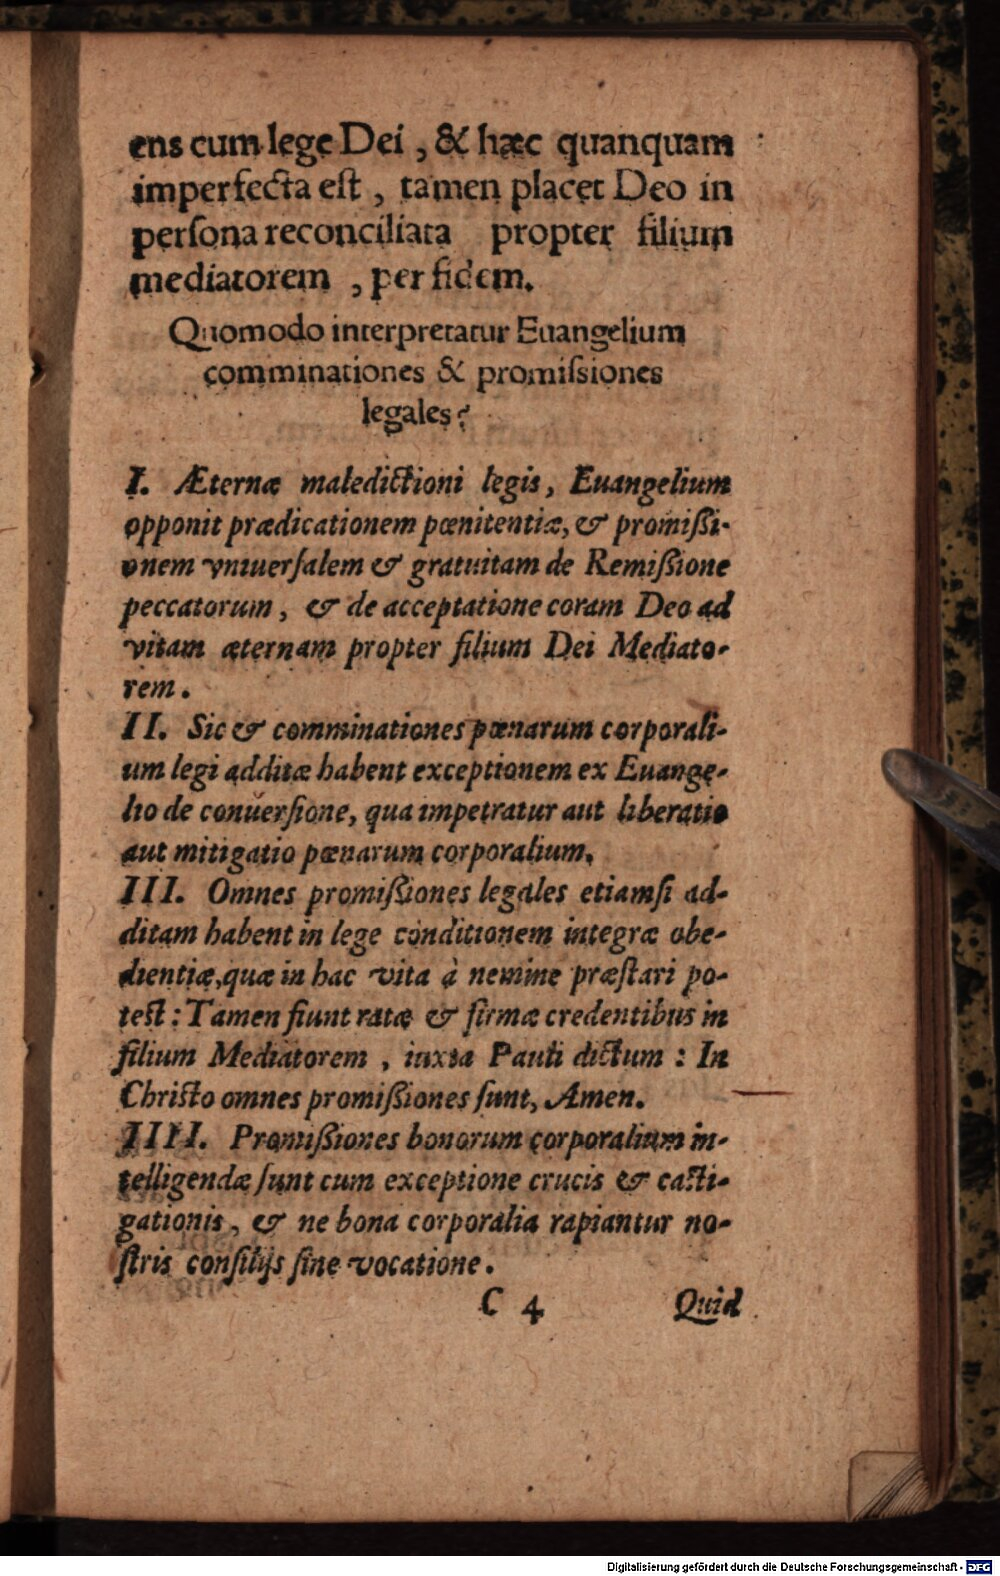 ens cum lege Dei, & hæc quanquam
imperfecta eſt, tamen placet Deo in
perſona reconciliata propter filium
mediatorem, per fidem.
Quomodo interpretatur Euangelium
comminationes & promiſsiones
legales?
I. Æternæ maledictioni legis, Euangelium
opponit prædicationem pœnitentiæ, & promißi-
onem vniuerſalem & gratuitam de Remißione
peccatorum, & de acceptatione coram Deo ad
vitam æternam propter filium Dei Mediato-
rem.
II. Sic & comminationes pœnarum corporali-
um legi additæ habent exceptionem ex Euange-
lio de conuerſione, qua impetratur aut liberatio
aut mitigatio pœnarum corporalium.
III. Omnes promißiones legales etiamſi ad-
ditam habent in lege conditionem integræ obe-
dientiæ, quæ in hac vita à nemine præſtari po-
teſt: Tamen fiunt ratæ & firmæ credentibus in
filium Mediatorem, iuxta Pauli dictum: In
Chriſto omnes promißiones ſunt, Amen.
IIII. Promißiones bonorum corporalium in-
telligendæ ſunt cum exceptione crucis & caſti-
gationis, & ne bona corporalia rapiantur no-
ſtris conſilijs ſine vocatione.
C 4 Quid
Digitalisierung gefördert durch die Deutsche Forschungsgemeinschaft - DFG